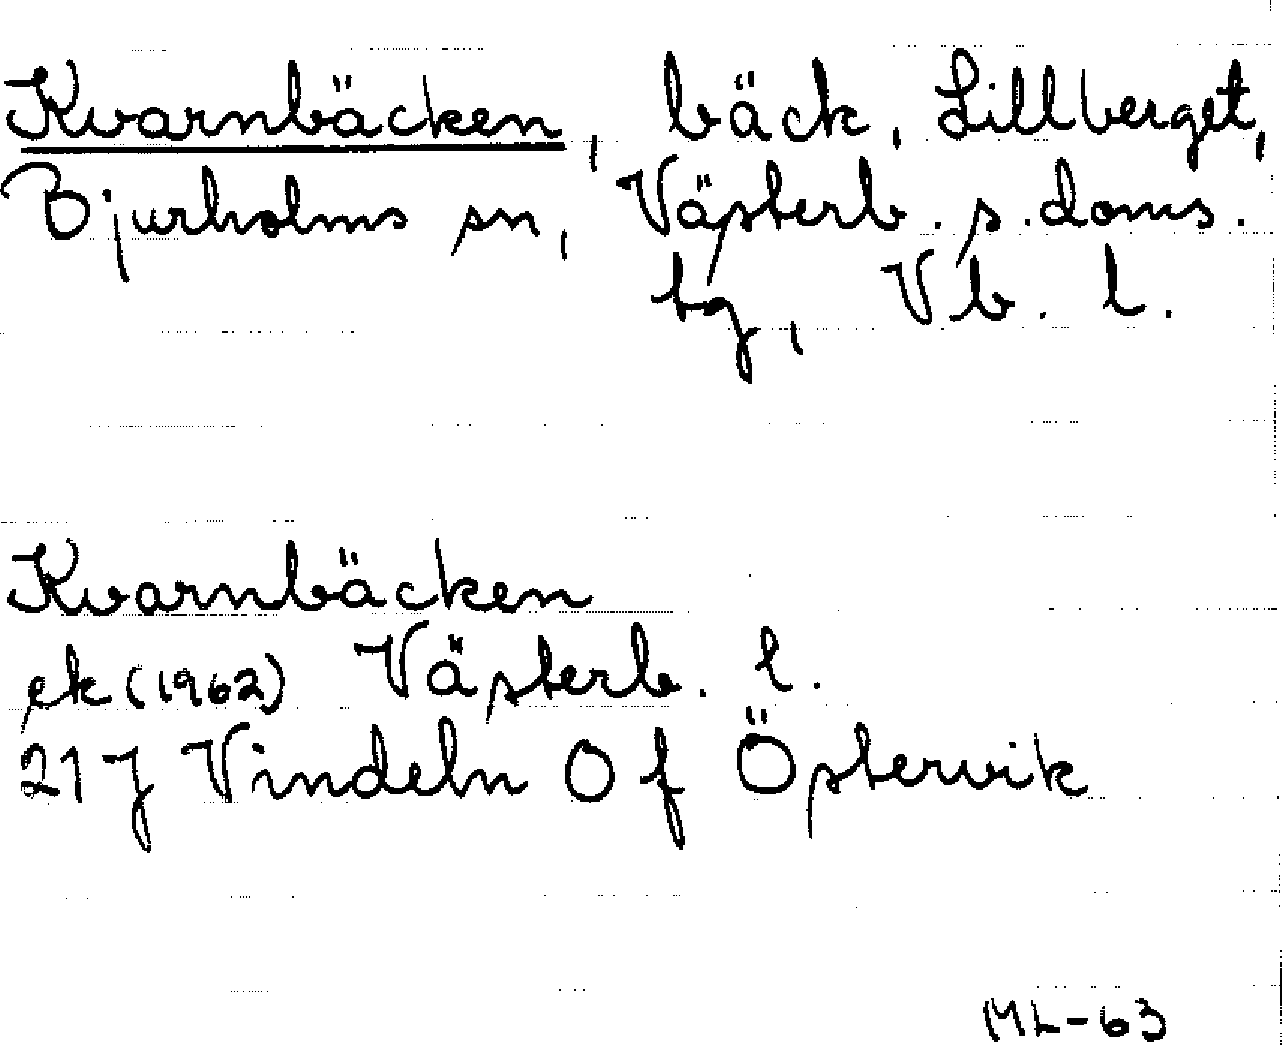 Kvarnbäcken, bäck, Lillberget,
Bjurholms sn, Västerb. s. doms.
tg, Vb. l.
Kvarnbäcken
ek (1962) Västerb. l.
21 J Vindeln 0 f Östervik
ML-63